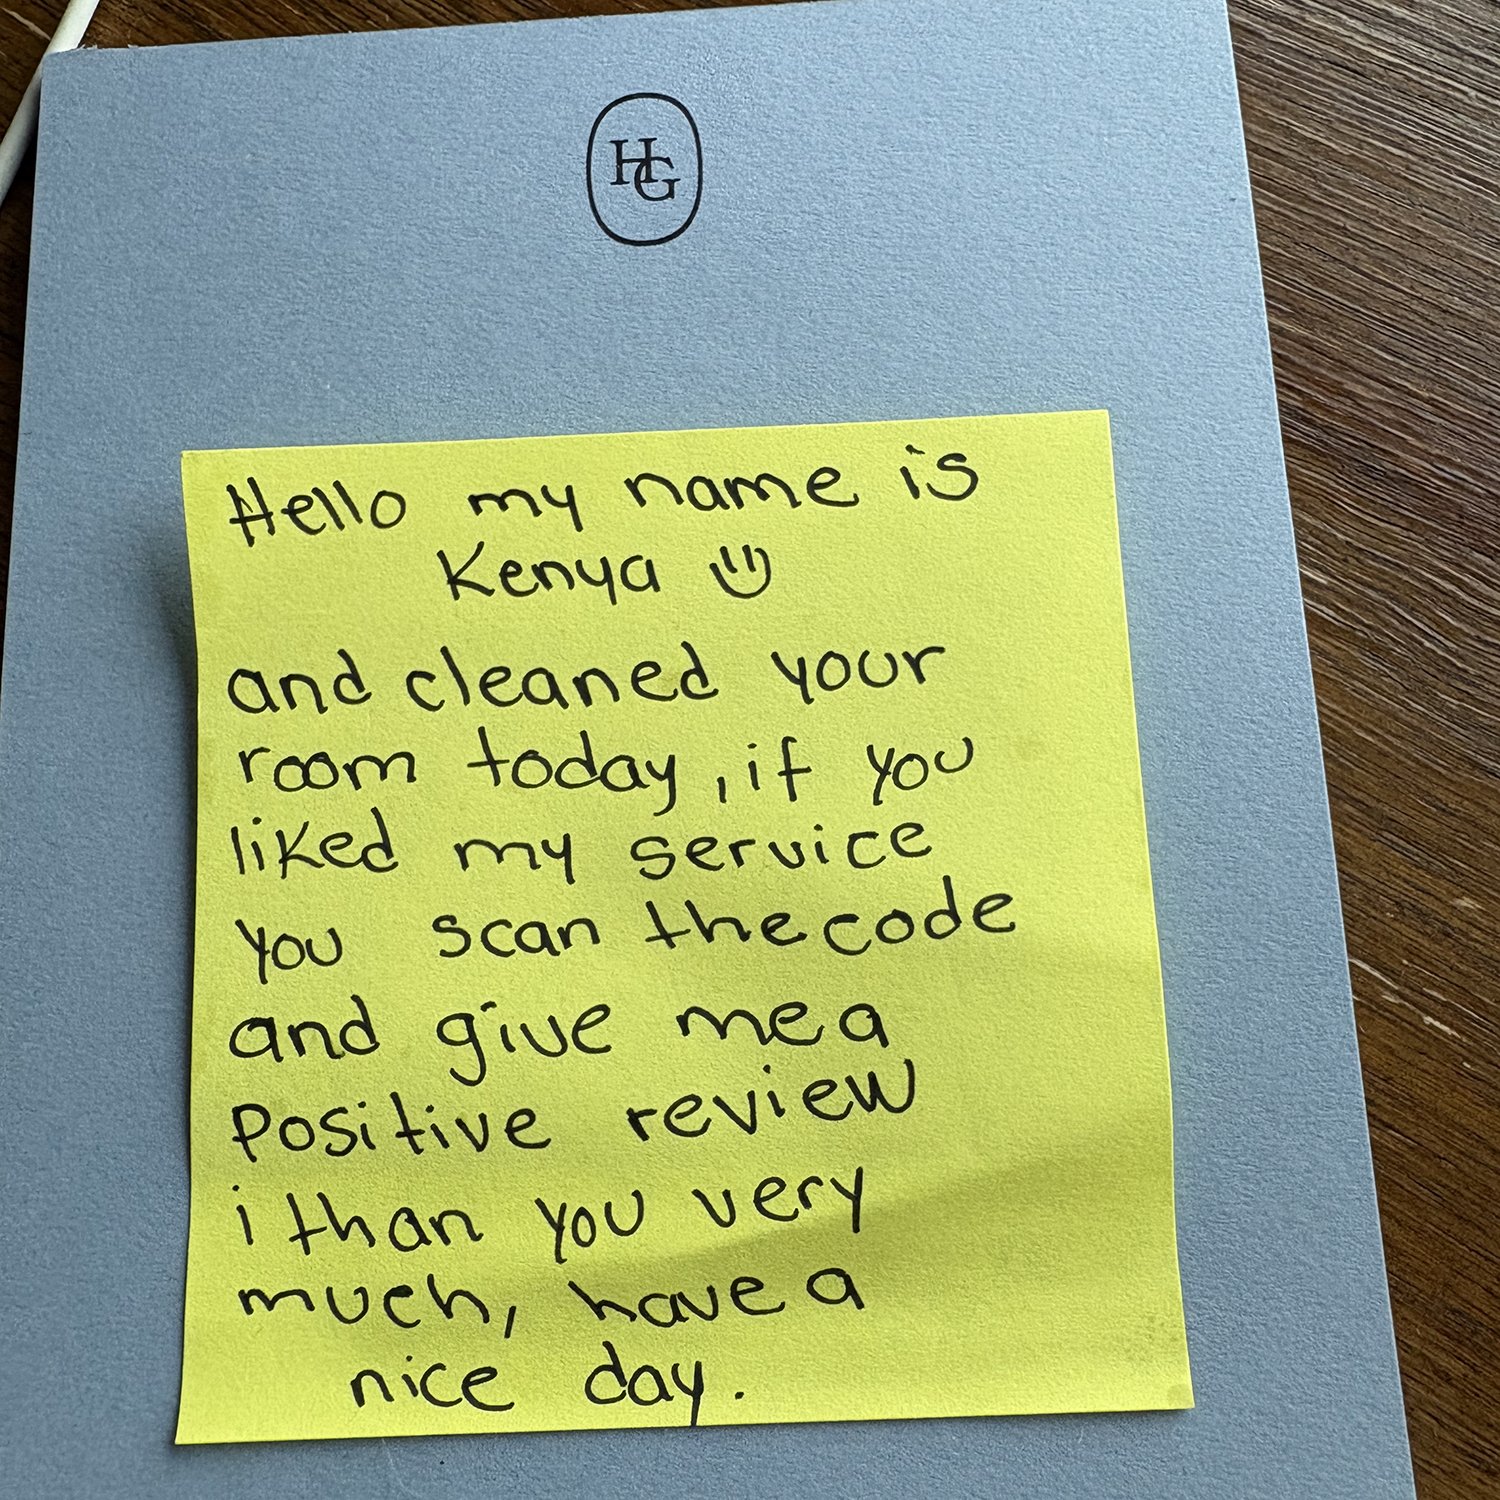 HG
Hello my name is
Kenya
and cleaned your
room today, if you
liked my service
you scan the code
and give me a
Positive review
i than you very
much, have a
nice day.